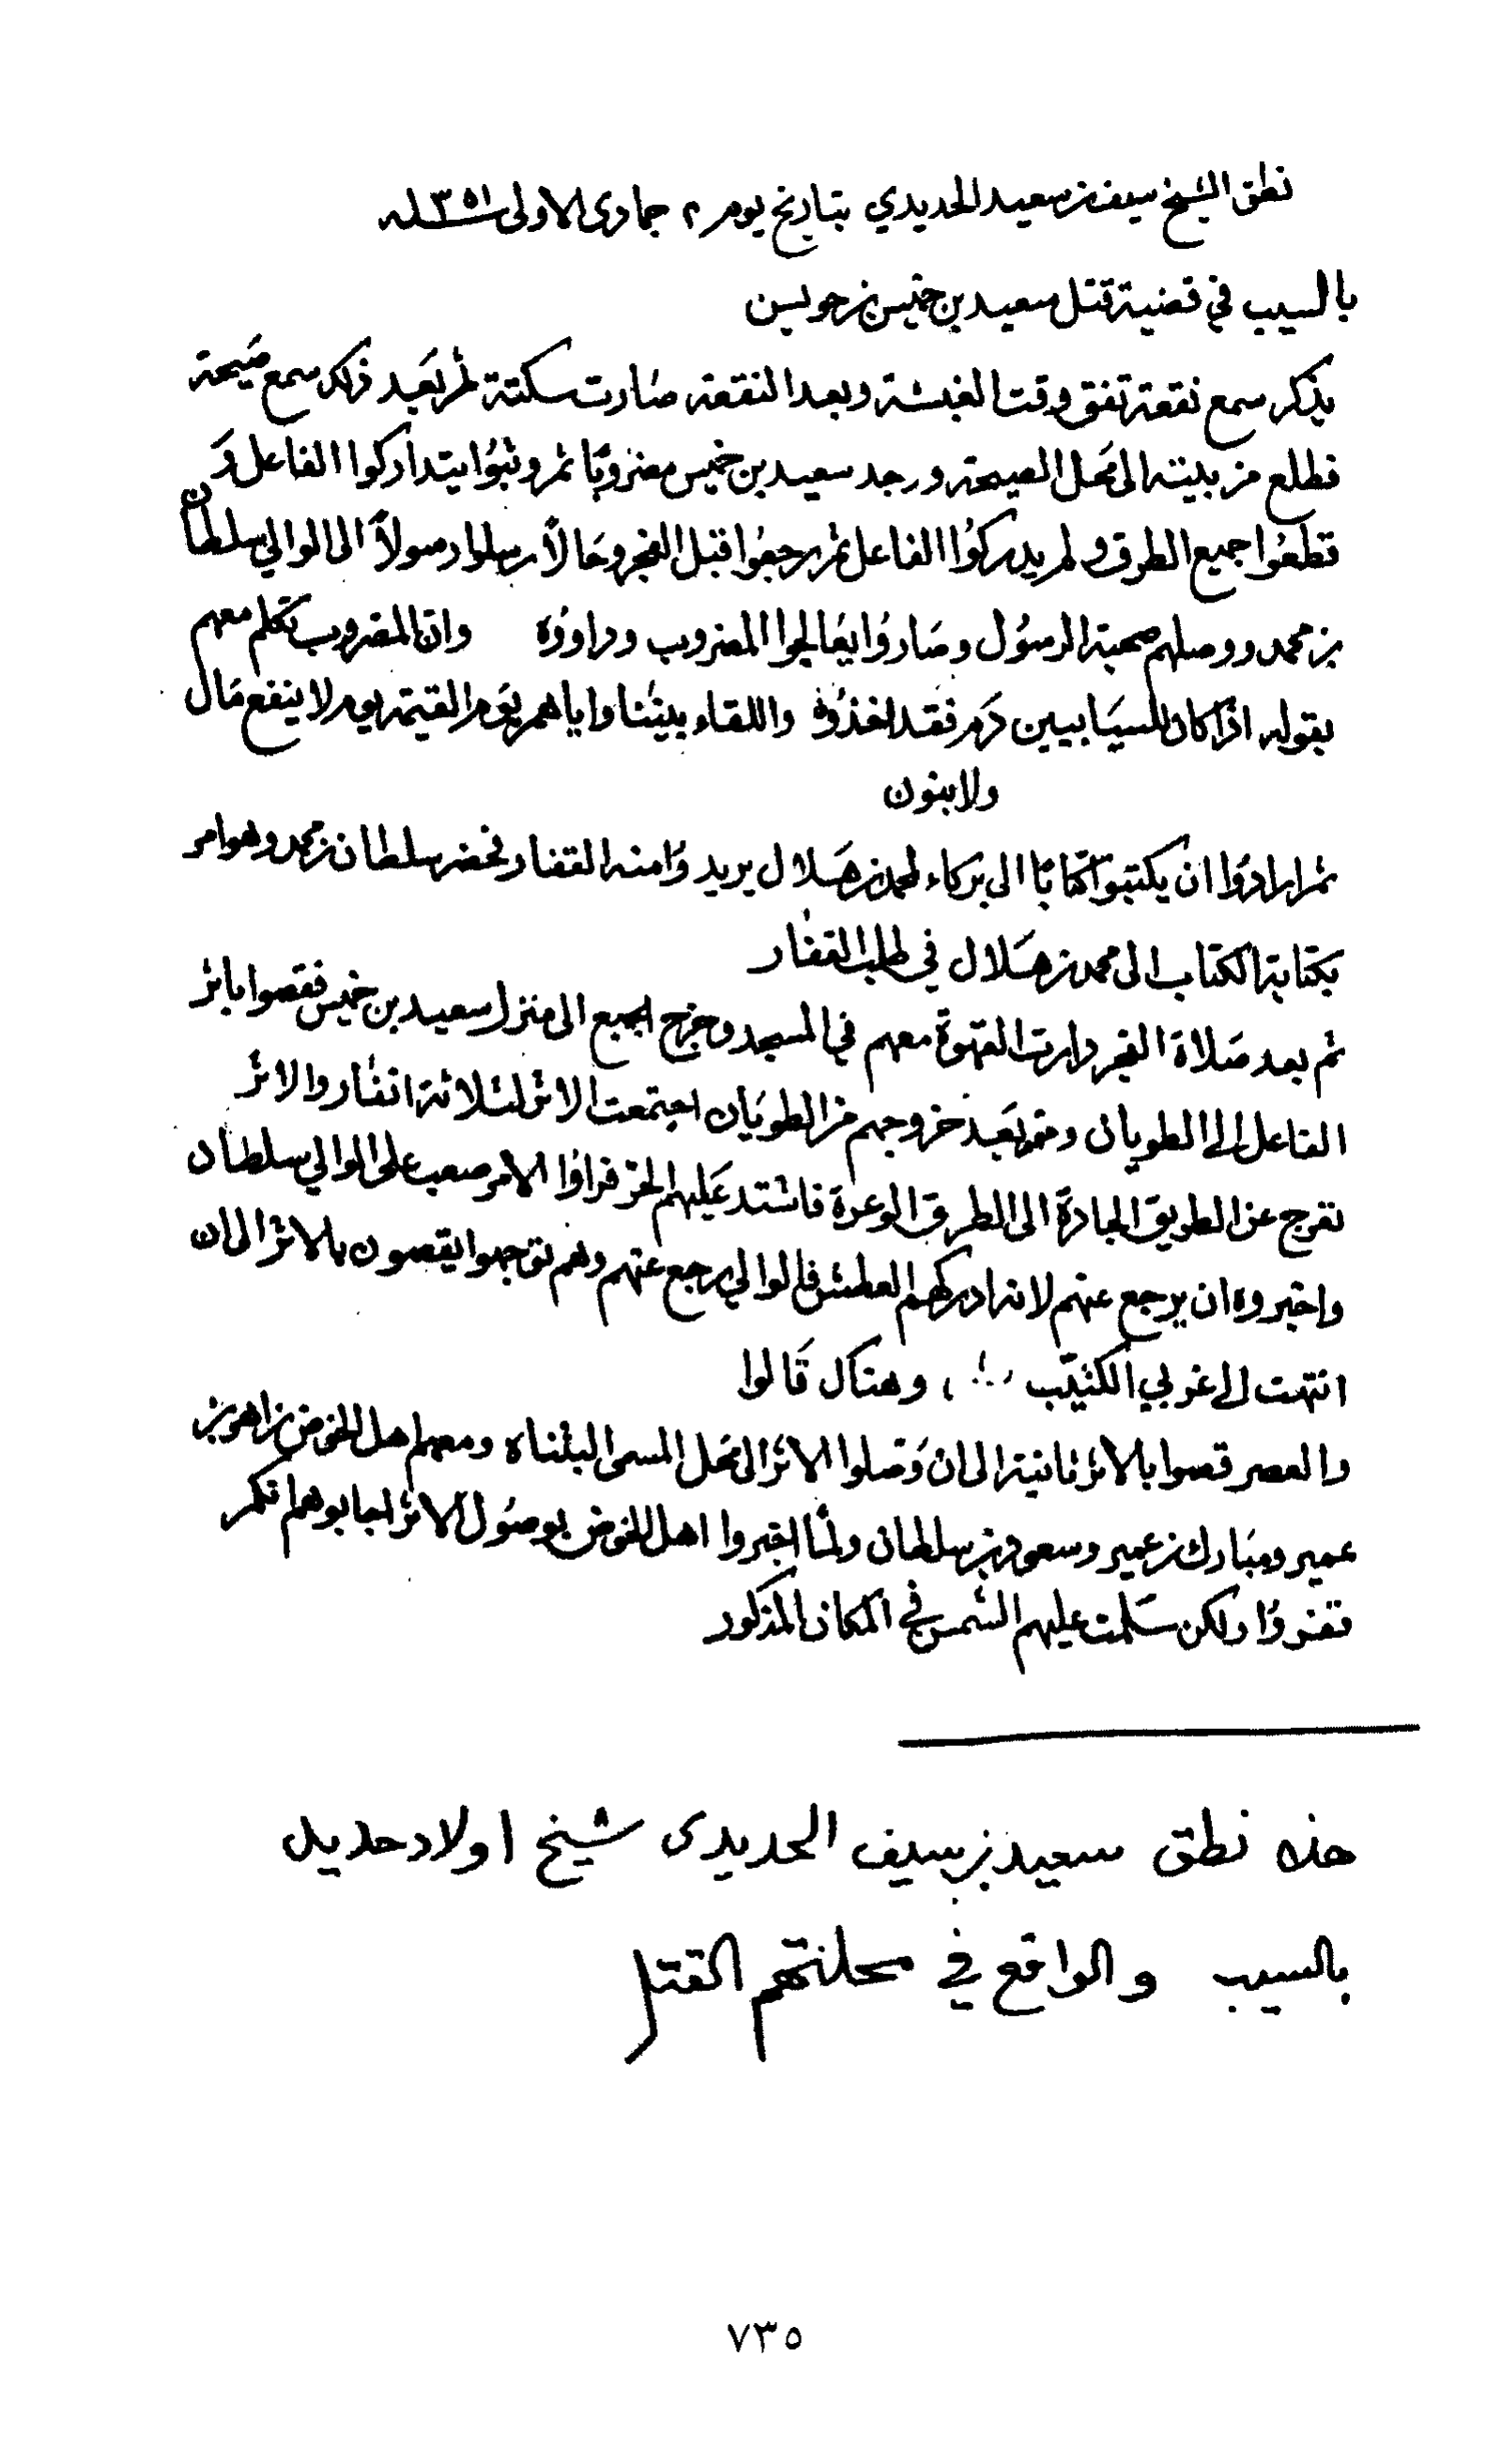 نطق الشيخ سيف بن سعيد الحديدي بتاريخ يوم ٢ جمادى الاولى سنة ١٣٥١
بالسيب في قضية قتل سعيد بن خميس بن حويسن
يذكر سمع نقعة تفق وقت الغبشة وبعد النقعة صارت سكتة ثم بعد ذلك سمع صيحة
فطلع من بيته الى محل الصيحة ووجد سعيد بن خميس مضروبًا ثم وثبوا يتداركوا الفاعل وَ
قطعوا جميع الطرق ولم يدركوا الفاعل ثم رجعوا قبل الفجر وحالاً ارسلوا رسولاً الى الوالي سلطان
بن محمد ووصلهم صحبة الرسول وصاروا يعالجوا المضروب وداووه وان المضروب تكلم معهم
بقوله اذا كان للسيابيين دم فقد اخذوه واللقاء بيننا واياهم يوم القيمة يوم لا ينفع مال
ولا بنون
ثم ارادوا ان يكتبوا كتابًا الى بركاء لمحمد بن هلال يريدوا منه القفار فحضر سلطان بن محمد وهو امر
بكتابة الكتاب الى محمد بن هلال في طلب القفار
ثم بعد صلاة الفجر دارت القهوة معهم في المسجد وخرج الجميع الى منزل سعيد بن خميس فقصوا باثر
الفاعل الى الطويان ومن بعد خروجهم من الطويان اجتمعت الاثر لثلاثة انفار والاثر
تفرج عن الطريق الجادة الى الطرق الوعرة فاشتد عليهم الحر فراوا الامر صعب على الوالي سلطان
واخبروه ان يرجع عنهم لانه ادركهم العطش فالوالي رجع عنهم وهم توجهوا يقصون بالاثر الى ان
انتهت الى غربي الكثيب وهناك قالوا
والعصر قصوا بالاثر ثانية الى ان وصلوا الاثر الى محل المسمى البثناه ومعهم اهل الخوض زاهر بن
عمير ومبارك بن عمير وسعود بن سلطان ولما اخبروا اهل الخوض بوصول الاثر اجابوهم انكم
تقفروا ولكن سلمت عليهم الشمس في المكان المذكور
هذه نطق سعيد بن سيف الحديدى شيخ اولاد حديد
بالسيب والواقع في محلتهم القتل
٧٣٥